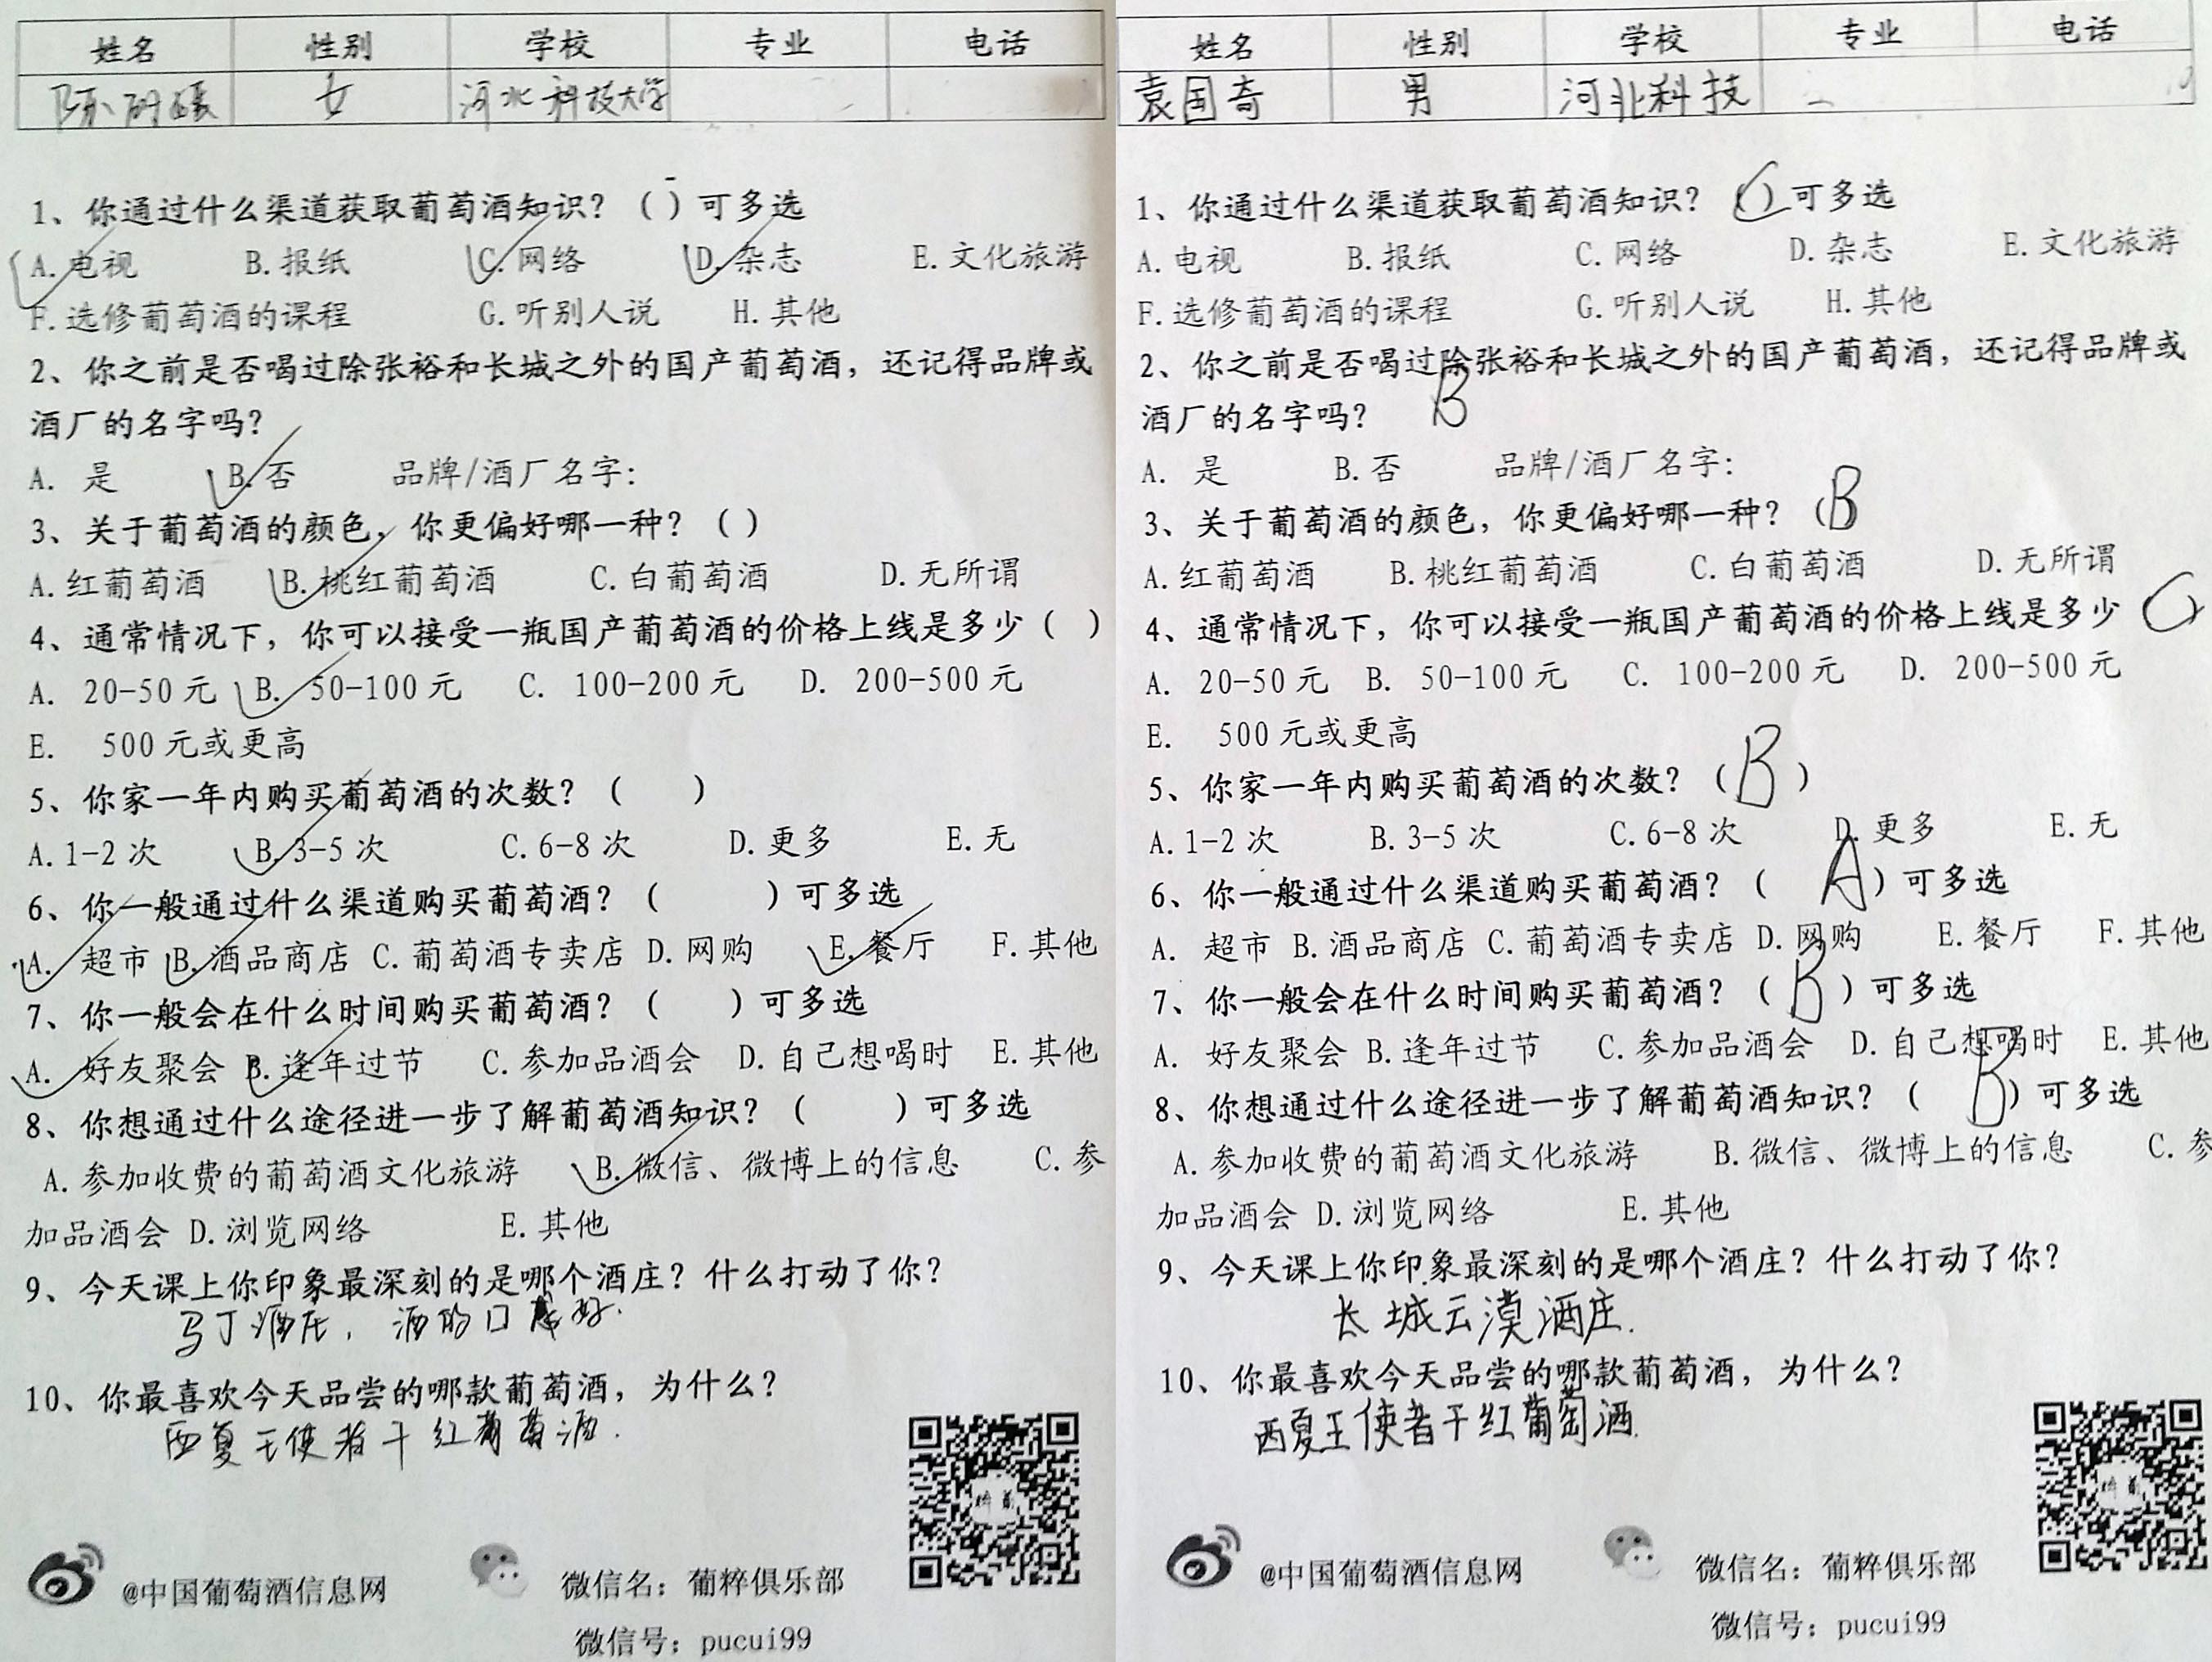 姓名 性别 学校 专业 电话
陈 女 河北科技大学
1、你通过什么渠道获取葡萄酒知识？（ ）可多选
A.电视 B.报纸 C.网络 D.杂志 E.文化旅游
F.选修葡萄酒的课程 G.听别人说 H.其他
2、你之前是否喝过除张裕和长城之外的国产葡萄酒，还记得品牌或
酒厂的名字吗？
A. 是 B.否 品牌/酒厂名字：
3、关于葡萄酒的颜色，你更偏好哪一种？（ ）
A.红葡萄酒 B.桃红葡萄酒 C.白葡萄酒 D.无所谓
4、通常情况下，你可以接受一瓶国产葡萄酒的价格上线是多少（ ）
A. 20-50元 B. 50-100元 C. 100-200元 D. 200-500元
E. 500元或更高
5、你家一年内购买葡萄酒的次数？（ ）
A.1-2次 B.3-5次 C.6-8次 D.更多 E.无
6、你一般通过什么渠道购买葡萄酒？（ ）可多选
A. 超市 B.酒品商店 C.葡萄酒专卖店 D.网购 E.餐厅 F.其他
7、你一般会在什么时间购买葡萄酒？（ ）可多选
A. 好友聚会 B.逢年过节 C.参加品酒会 D.自己想喝时 E.其他
8、你想通过什么途径进一步了解葡萄酒知识？（ ）可多选
A.参加收费的葡萄酒文化旅游 B.微信、微博上的信息 C.参
加品酒会 D.浏览网络 E.其他
9、今天课上你印象最深刻的是哪个酒庄？什么打动了你？
马丁酒庄，酒的口感好.
10、你最喜欢今天品尝的哪款葡萄酒，为什么？
西夏王使者干红葡萄酒.
@中国葡萄酒信息网 微信名：葡粹俱乐部
微信号：pucui99
姓名 性别 学校 专业 电话
袁国奇 男 河北科技
1、你通过什么渠道获取葡萄酒知识？（C）可多选
A.电视 B.报纸 C.网络 D.杂志 E.文化旅游
F.选修葡萄酒的课程 G.听别人说 H.其他
2、你之前是否喝过除张裕和长城之外的国产葡萄酒，还记得品牌或
酒厂的名字吗？ B
A. 是 B.否 品牌/酒厂名字：
3、关于葡萄酒的颜色，你更偏好哪一种？（B
A.红葡萄酒 B.桃红葡萄酒 C.白葡萄酒 D.无所谓
4、通常情况下，你可以接受一瓶国产葡萄酒的价格上线是多少 C）
A. 20-50元 B. 50-100元 C. 100-200元 D. 200-500元
E. 500元或更高
5、你家一年内购买葡萄酒的次数？（B）
A.1-2次 B.3-5次 C.6-8次 D.更多 E.无
6、你一般通过什么渠道购买葡萄酒？（ A）可多选
A. 超市 B.酒品商店 C.葡萄酒专卖店 D.网购 E.餐厅 F.其他
7、你一般会在什么时间购买葡萄酒？（ B ）可多选
A. 好友聚会 B.逢年过节 C.参加品酒会 D.自己想喝时 E.其他
8、你想通过什么途径进一步了解葡萄酒知识？（ B）可多选
A.参加收费的葡萄酒文化旅游 B.微信、微博上的信息 C.参
加品酒会 D.浏览网络 E.其他
9、今天课上你印象最深刻的是哪个酒庄？什么打动了你？
长城云漠酒庄.
10、你最喜欢今天品尝的哪款葡萄酒，为什么？
西夏王使者干红葡萄酒.
@中国葡萄酒信息网 微信名：葡粹俱乐部
微信号：pucui99